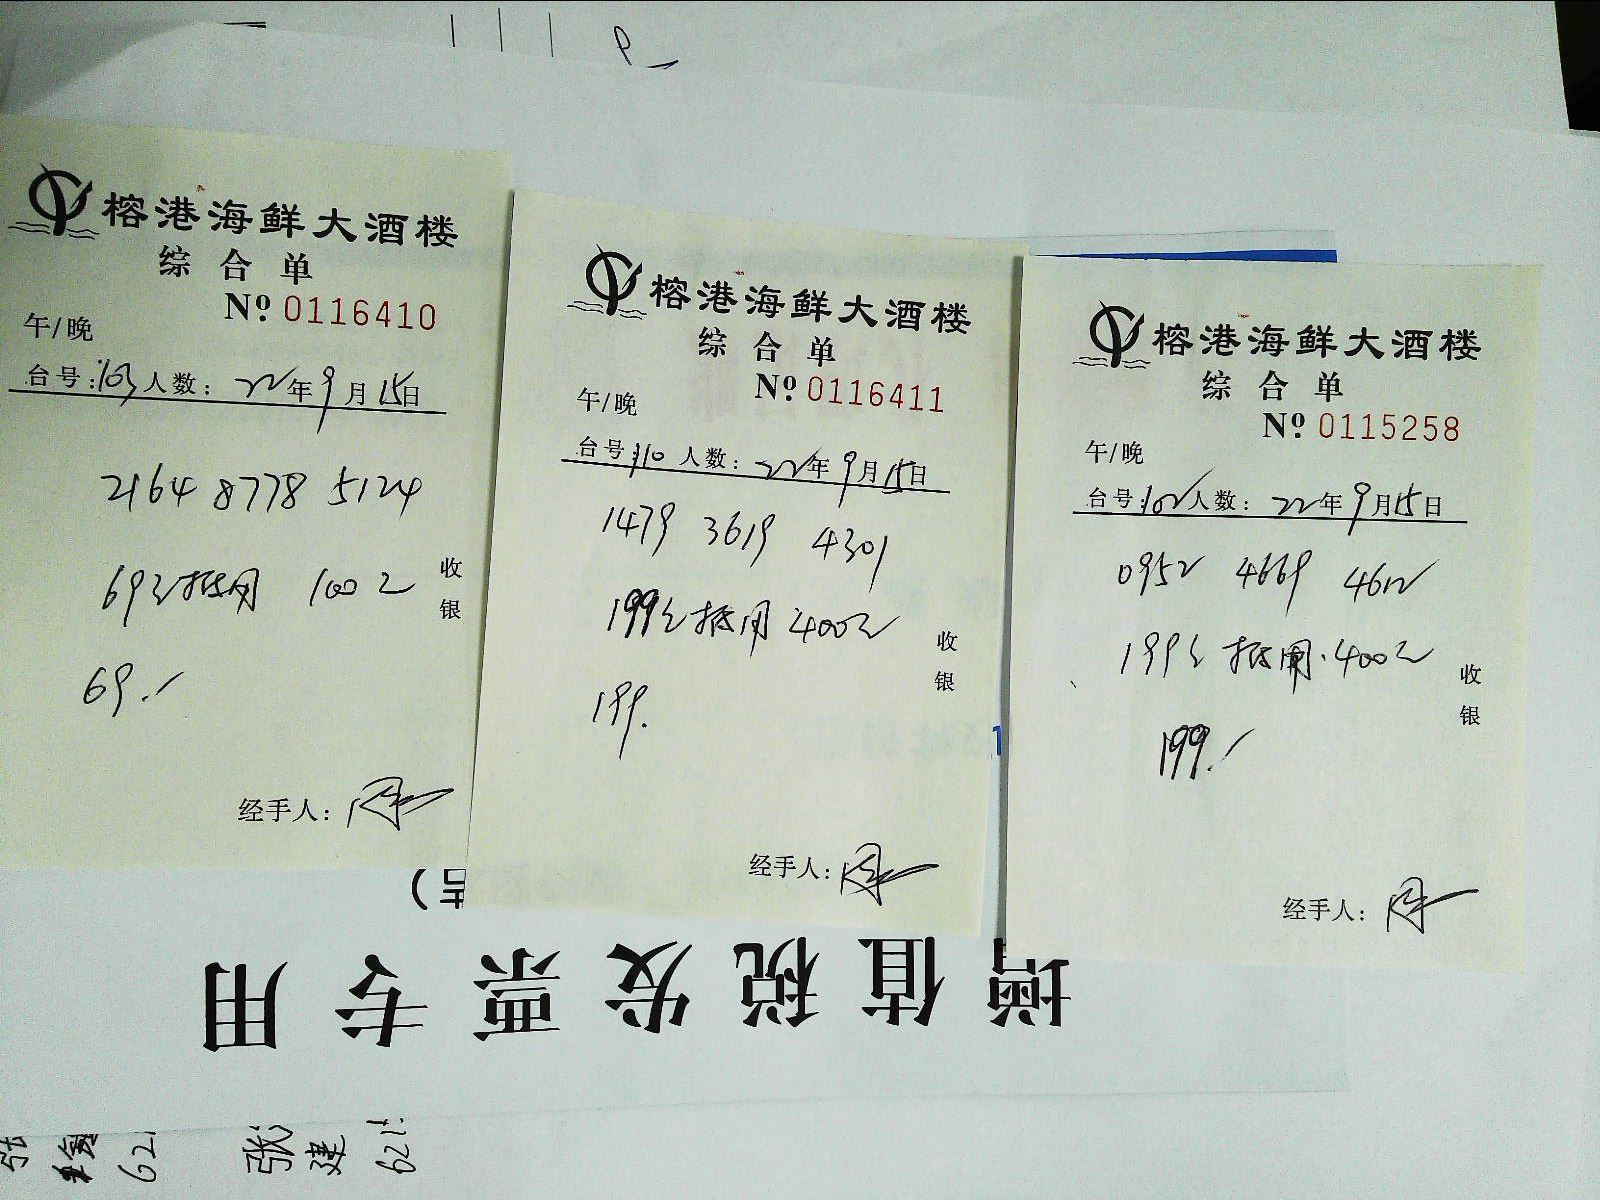 榕港海鲜大酒楼
综合单
Nº 0116410
午/晚
台号:103人数: 22年9月15日
2164 8778 5124
69元抵用 100元
69.-
收银
经手人:
榕港海鲜大酒楼
综合单
Nº 0116411
午/晚
台号:110 人数: 22年9月15日
1479 3619 4301
199元抵用 400元
199.
收银
经手人:
榕港海鲜大酒楼
综合单
Nº 0115258
午/晚
台号:102人数: 22年9月15日
0952 4669 4612
199元抵用.400元
199.-
收银
经手人:
增值税发票专用
张建 621